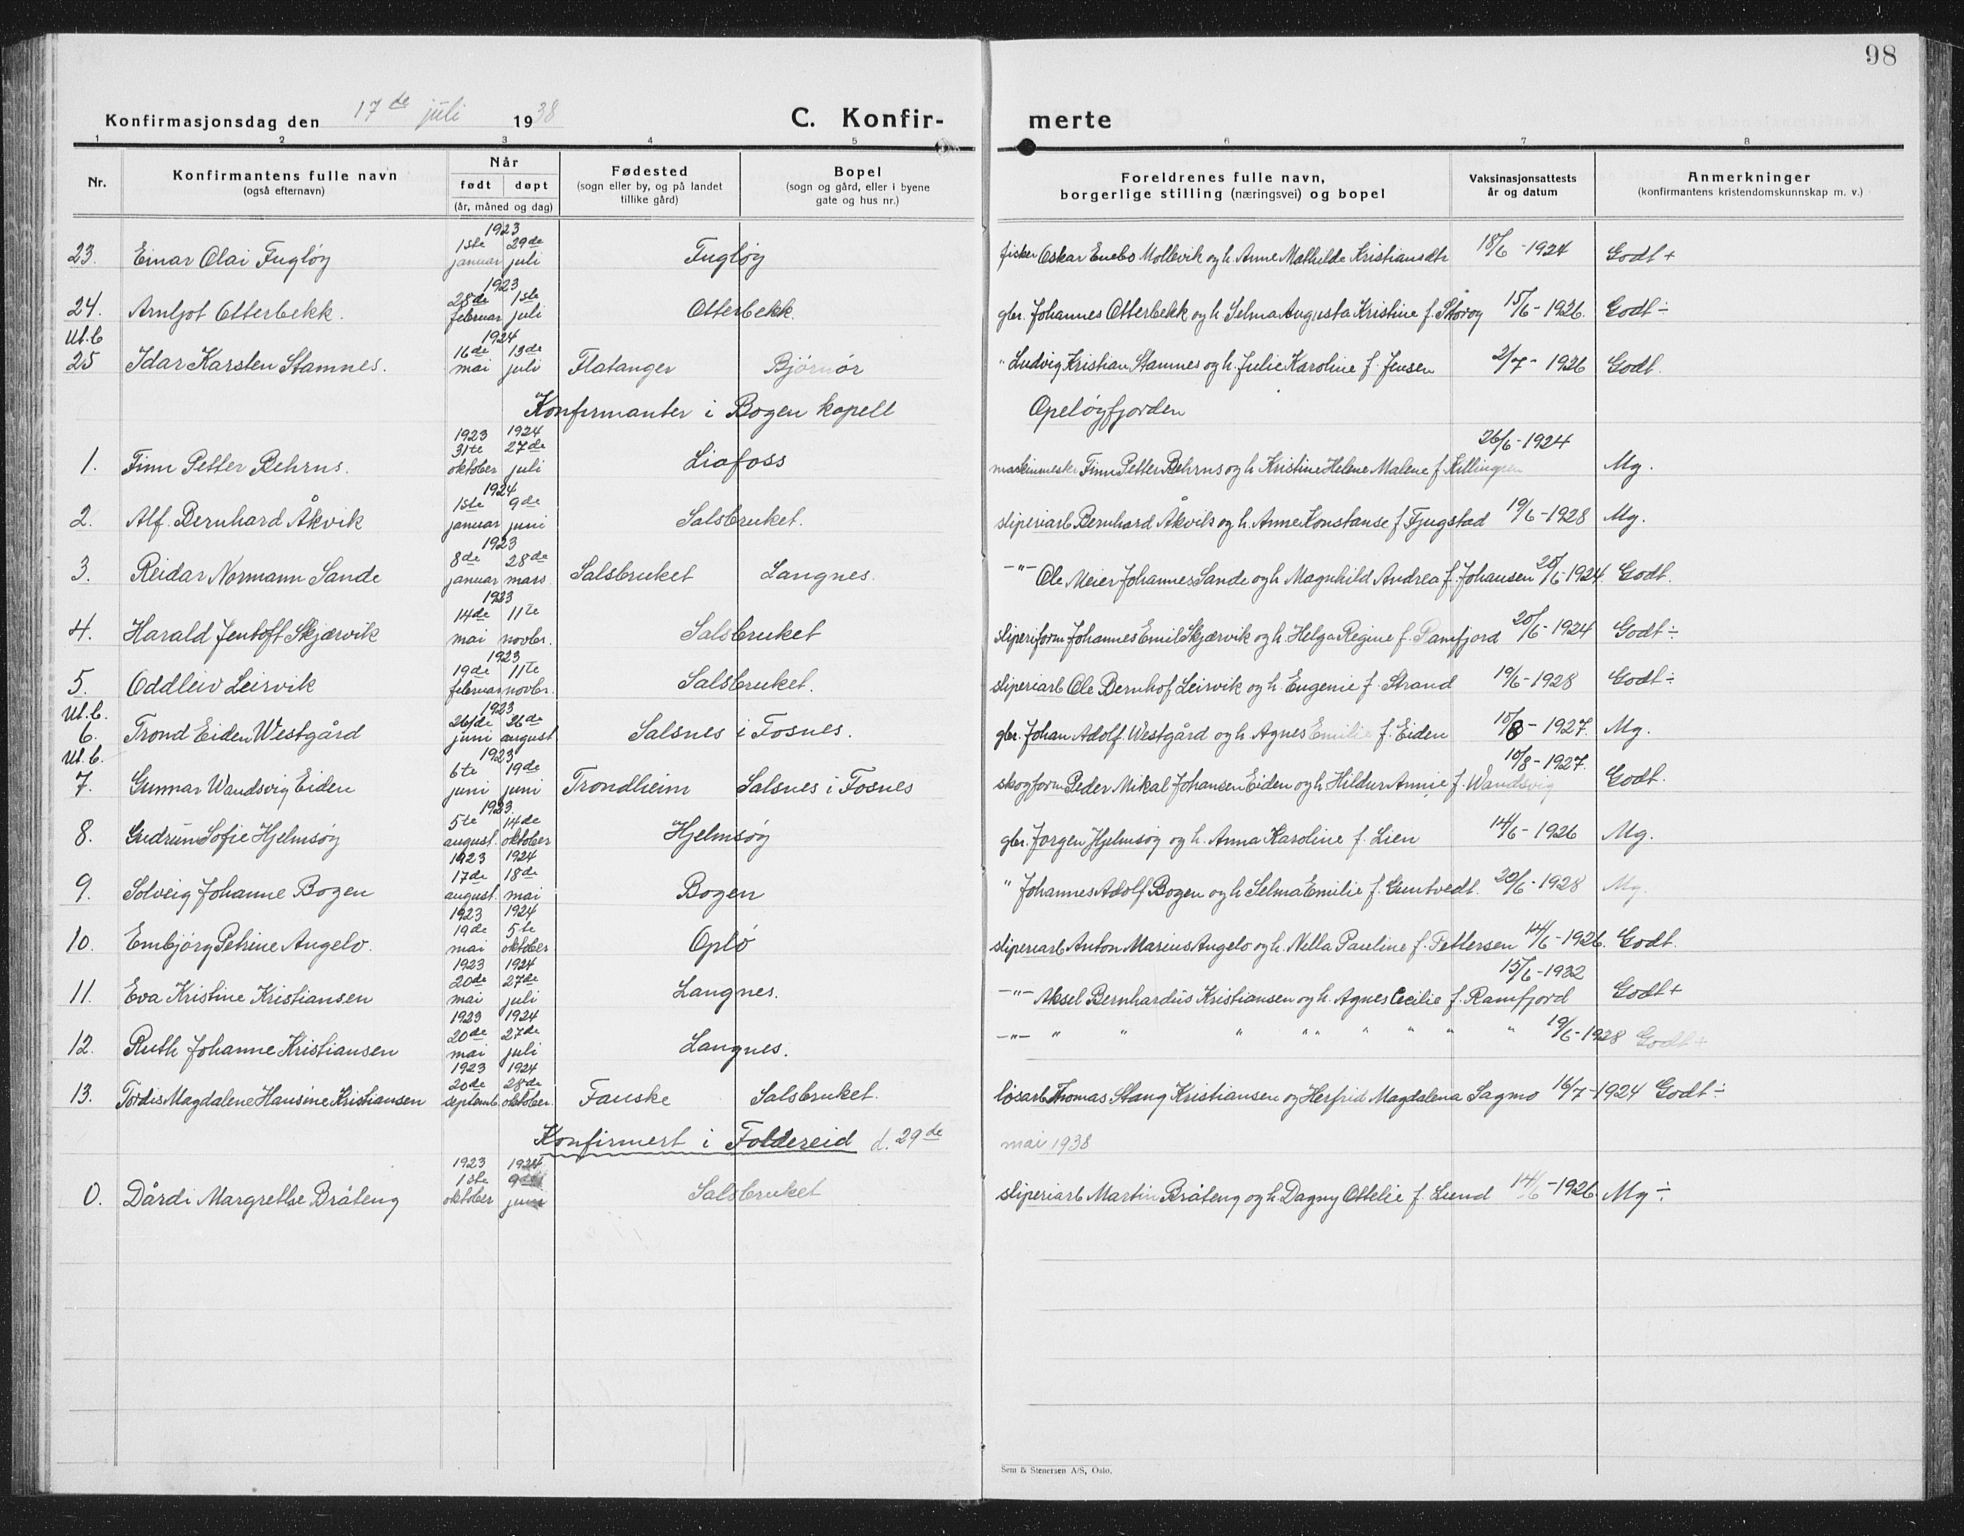 98
Konfirmasjonsdag den 17de juli 1938
C. Konfir- merte
1 2 3 4 5 6 7 8
Nr.
Konfirmantens fulle navn
(også efternavn)
Når
født døpt
(år, måned og dag)
Fødested
(sogn eller by, og på landet
tillike gård)
Bopel
(sogn og gård, eller i byene
gate og hus nr.)
Foreldrenes fulle navn,
borgerlige stilling (næringsvei) og bopel
Vaksinasjonsattests
år og datum
Anmerkninger
(konfirmantens kristendomskunnskap m. v.)
1923
23. Einar Olai Fugløy 1ste januar 29de juli Fugløy fisker Oskar Enebo Mollevik og h. Anne Mathilde Kristiansdtr 18/6-1924 Godt +
1923
24. Arnljot Otterbekk. 28de februar 1ste juli Otterbekk. gbr. Johannes Otterbekk og h. Selma Augusta Kristine f. Storøy 15/6-1926. Godt ÷
Ut.b 1924
25 Idar Karsten Stamnes. 16de mai 13de juli Flatanger Bjørnør " Ludvig Kristian Stamnes og h. Julie Karoline f. Jensen 2/7-1926 Godt.
Konfirmanter i Bogen kapell Opeløyfjorden
1923 1924
1. Finn Petter Behrns. 31te oktober 27de juli Liafoss maskinmester Finn Petter Behrns og h. Kristine Helene Malene f. Killingren 26/6-1924 Mg.
1924
2. Alf Bernhard Åkvik 1ste januar 9de juni Salsbruket. sliperiarb Bernhard Åkvik og h. Anne Konstanse f. Fjugstad 19/6-1928 Mg.
1923
3. Reidar Normann Sande 8de januar 28de mars Salsbruket Langnes. -"- Ole Meier Johannes Sande og h Magnhild Andrea f. Johansen 20/6-1924. Godt.
1923
4. Harald Jentoft Skjærvik 14de mai 11te novbr. Salsbruket sliperiform Johannes Emil Skjærvik og h. Helga Regine f. Ramfjord 20/6-1924 Godt ÷
1923
5. Oddleiv Leirvik 19de februar 11te novbr. Salsbruket. sliperiarb Ole Bernhof Leirvik og h Eugenie f. Strand 19/6-1928 Godt ÷
Ut.b. 1923
6. Trond Eiden Westgård 26de juni 26de august Salsnes i Fosnes. gbr. Johan Adolf Westgård og h Agnes Emilie f. Eiden 10/8-1927. Mg.
Ut.b. 1923
7. Gunnar Wandsvig Eiden 6te juni 19de juni Trondheim Salsnes i Fosnes skogform Peder Mikal Johansen Eiden og h Hildur Annie f. Wandsvig 10/8-1927. Godt.
1923.
8. Gudrun Sofie Hjelmsøy 5te august 14de oktober Hjelmsøy gbr. Jørgen Hjelmsøy og h. Anna Karoline f. Lien 14/6-1926 Mg.
1923 1924
9. Solveig Johanne Bogen 17de august. 18de mai Bogen " Johannes Adolf Bogen og h Selma Emilie f. Guntvedt. 20/6-1928 Mg
1923 1924
10. Embjørg Petrine Angelo. 19de mai 5te oktober Oplø sliperiarb Anton Marius Angelo og h. Nella Pauline f. Pettersen 14/6-1926. Godt.
1923 1924
11. Eva Kristine Kristiansen 20de mai 27de juli Langnes. -"- Aksel Bernhardus Kristiansen og h. Agnes Cecilie f. Ramfjord 15/6-1932 Godt +
1923 1924
12. Ruth Johanne Kristiansen 20de mai 27de juli Langnes. -"- " " " " " " " " " 19/6-1928 Godt +
1923 1924
13. Tordis Magdalene Hansine Kristiansen 20de septemb. 28de oktober. Fauske Salsbruket. løsarb Thomas Stang Kristiansen og Herfrid Magdalena Sagmo 16/7-1924 Godt ÷
Konfirmert i Foldereid d. 29de mai 1938
1923 1924
0. Dårdi Margrethe Bråteng 1ste oktober 9de juni Salsbruket sliperiarb Martin Bråteng og h. Dagny Ottelie f. Lund 14/6-1926 Mg ÷
Sem & Stenersen A/S, Oslo.